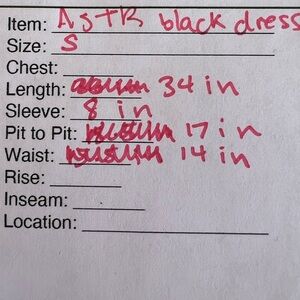 Item: AStR black dress
Size: S
Chest:
Length: 34 in
Sleeve: 8 in
Pit to Pit: 17 in
Waist: 14 in
Rise:
Inseam:
Location: